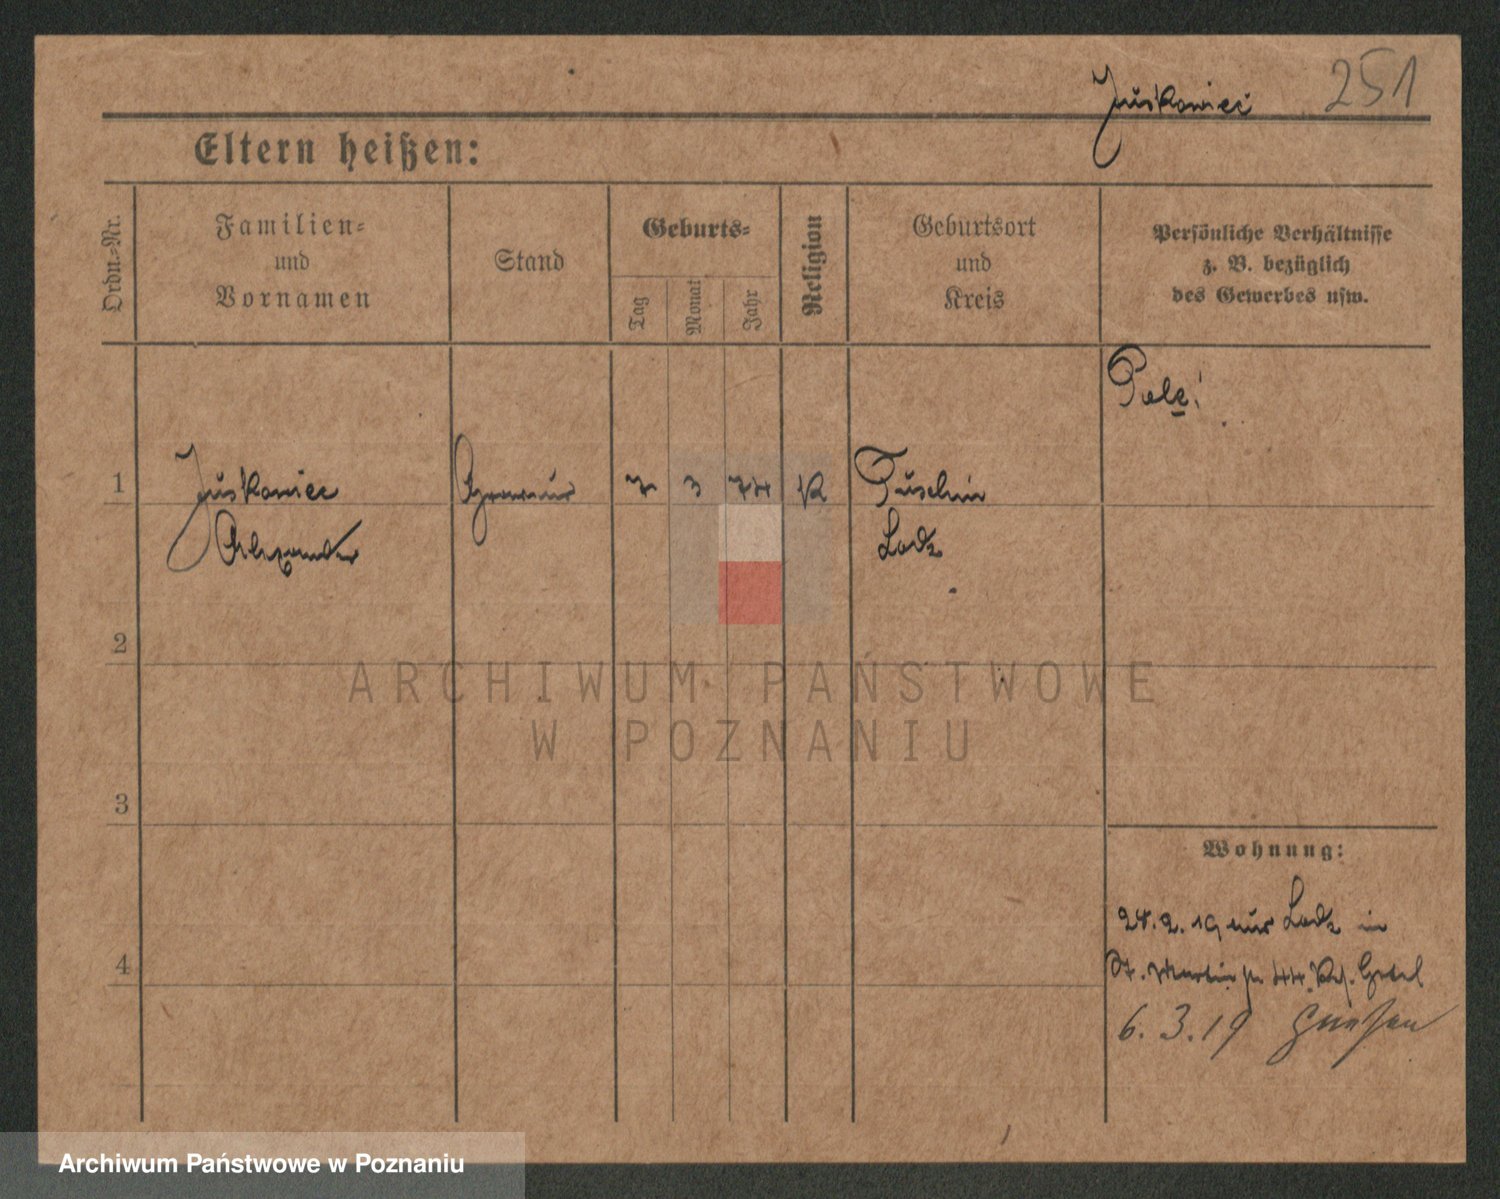 Juskowiec 251
Eltern heißen:
Ordn.-Nr.
Familien-
und
Vornamen
Stand
Geburts-
Tag
Monat
Jahr
Religion
Geburtsort
und
Kreis
Persönliche Verhältnisse
z. B. bezüglich
des Gewerbes usw.
Pole!
1 Juskowiec 7 3 74 K Tuschin
Alexander Lodz
2
ARCHIWUM PAŃSTWOWE
W POZNANIU
3
Wohnung:
28.2.19 aus Lodz in
St. Martinstr 44. Hotel
4
6.3.19 Gnesen
Archiwum Państwowe w Poznaniu